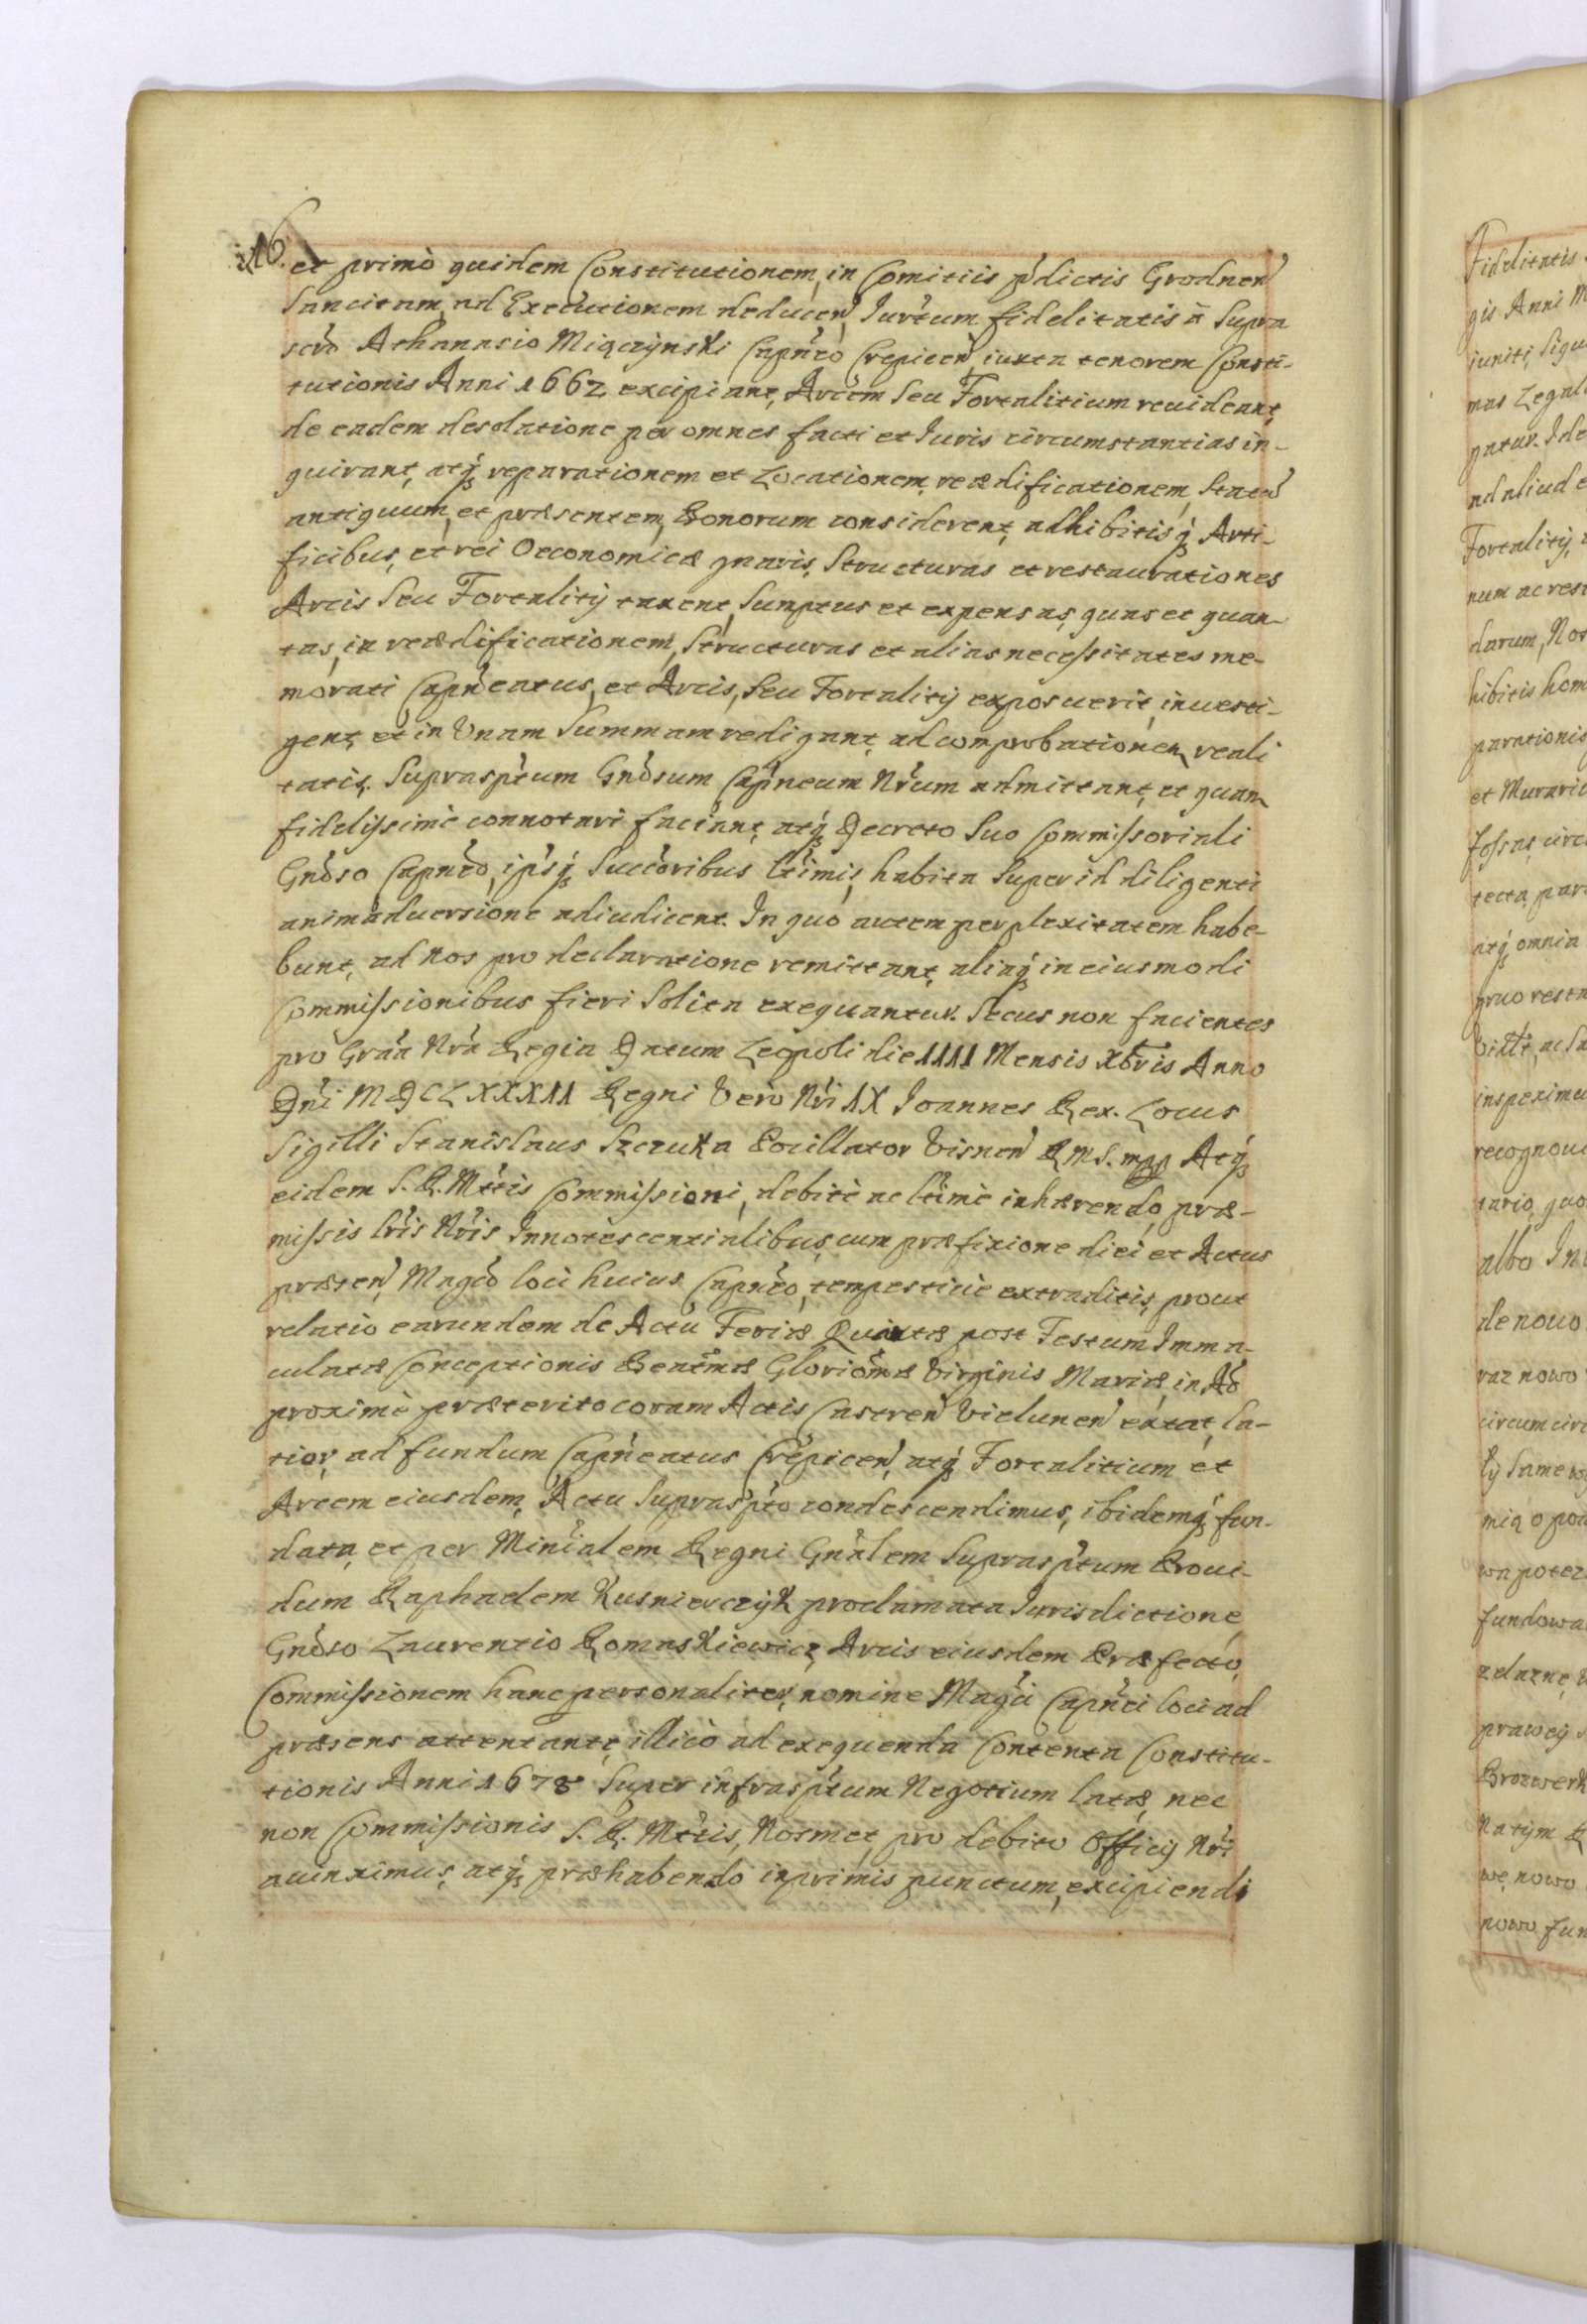 216.
et primò quidem Constitutionem, in Comitiis pdictis Grodnen
Sancitam, ad Executionem deducen, Iurtum fidelitatis à Supra
scto Athanasio Miączÿnski Capneo Crepicen, iuxta tenorem Consti-
tutionis Anni 1662 excipiant, Arcem Seu Fortalitium reuideant,
de eadem desolatione per omnes facti et Iuris circumstantias in-
quirant, atq reparationem et Locationem, reædificationem, Statu
antiquum, et præsentem, Bonorum considerent, adhibitisq Arti-
ficibus, et rei Oeconomicæ gnaris, Structuras et restaurationes
Arcis Seu Fortalitÿ taxent, Sumptus et expensas, quas et quan-
tas, in reædificationem, Structuras et alias necessitates me-
morati Capneatus, et Arcis, Seu Fortalitÿ exposuerit, inuesti-
gent, et in Vnam Summam redigant, ad comprobationem reali
tatis, Supraspتum Gnosum Capneum Nrum admittant, et quam
fidelissimè connotari faciant, atq Decreto Suo Commissoriali
Gnoso Capneo, ipsq Succoribus ltimis, habita Super id diligenti
animaduersione adiudicent. In quo autem perplexitatem habe-
bunt, ad Nos pro declaratione remittant, aliaq in eiusmodi
Commissionibus fieri Solita exequantur. Secus non facientes
pro Graa Nra Regia Datum Leopoli die IIII Mensis Xbris Anno
Dni MDCLXXXII Regni Vero Nri IX Ioannes Rex. Locus
Sigilli Stanislaus Szczuka Pocillator Visnen R M S. mpp Atq
eidem S. R. Mttis Commissioni, debitè ac ltimè inhærendo, præ-
missis lris Nris Innotescentialibus, cum præfixione diei et Actus
præsen, Magco loci huius Capneo, tempestiuè extraditis, prout
relatio earundem de Actu Feriæ Quintæ post Festum Imma-
culatæ Conceptionis Beatmæ Gloriosmæ Virginis Mariæ, in Ao
proximè præterito coram Actis Castren Vielunen extat, la-
tior, ad fundum Capneatus Crepicen, atq Fortalitium et
Arcem eiusdem, Actu Suprasptо condescendimus, ibidemq fun-
data, et per Minialem Regni Gnalem Suprasptum Proui-
dum Raphaelem Kusnierczÿk proclamata Iurisdictione,
Gnoso Laurentio Romaskiewicz, Arcis eiusdem Præfecto,
Commissionem hanc personaliter, nomine Magci Capnei loci ad
præsens attentante, illicò ad exequenda Contenta Constitu-
tionis Anni 1678 Super infrasptum Negotium latæ, nec
non Commissionis S. R. Mttis, Nosmet, pro debito Officÿ Nri
accinximus, atq præhabendo inprimis punctum, excipiendi
Fidelitatis
gis Anni M
iuniti, Sigu
mas Legal
patur. Ide
ad aliud e
Fortalitÿ,
num ac rest
darum, Nos
hibitis hom
parationis
et Murari
fossas, circ
tecta, par
atq omnia
inspeximu
recognoui
tario, quo
albo In
de nouo
raz nowo
circumcir
tÿ Same w
mią o pow
wa potez
fundowa
zelazne,
prawey
Natÿm
we nowo
nowo fun